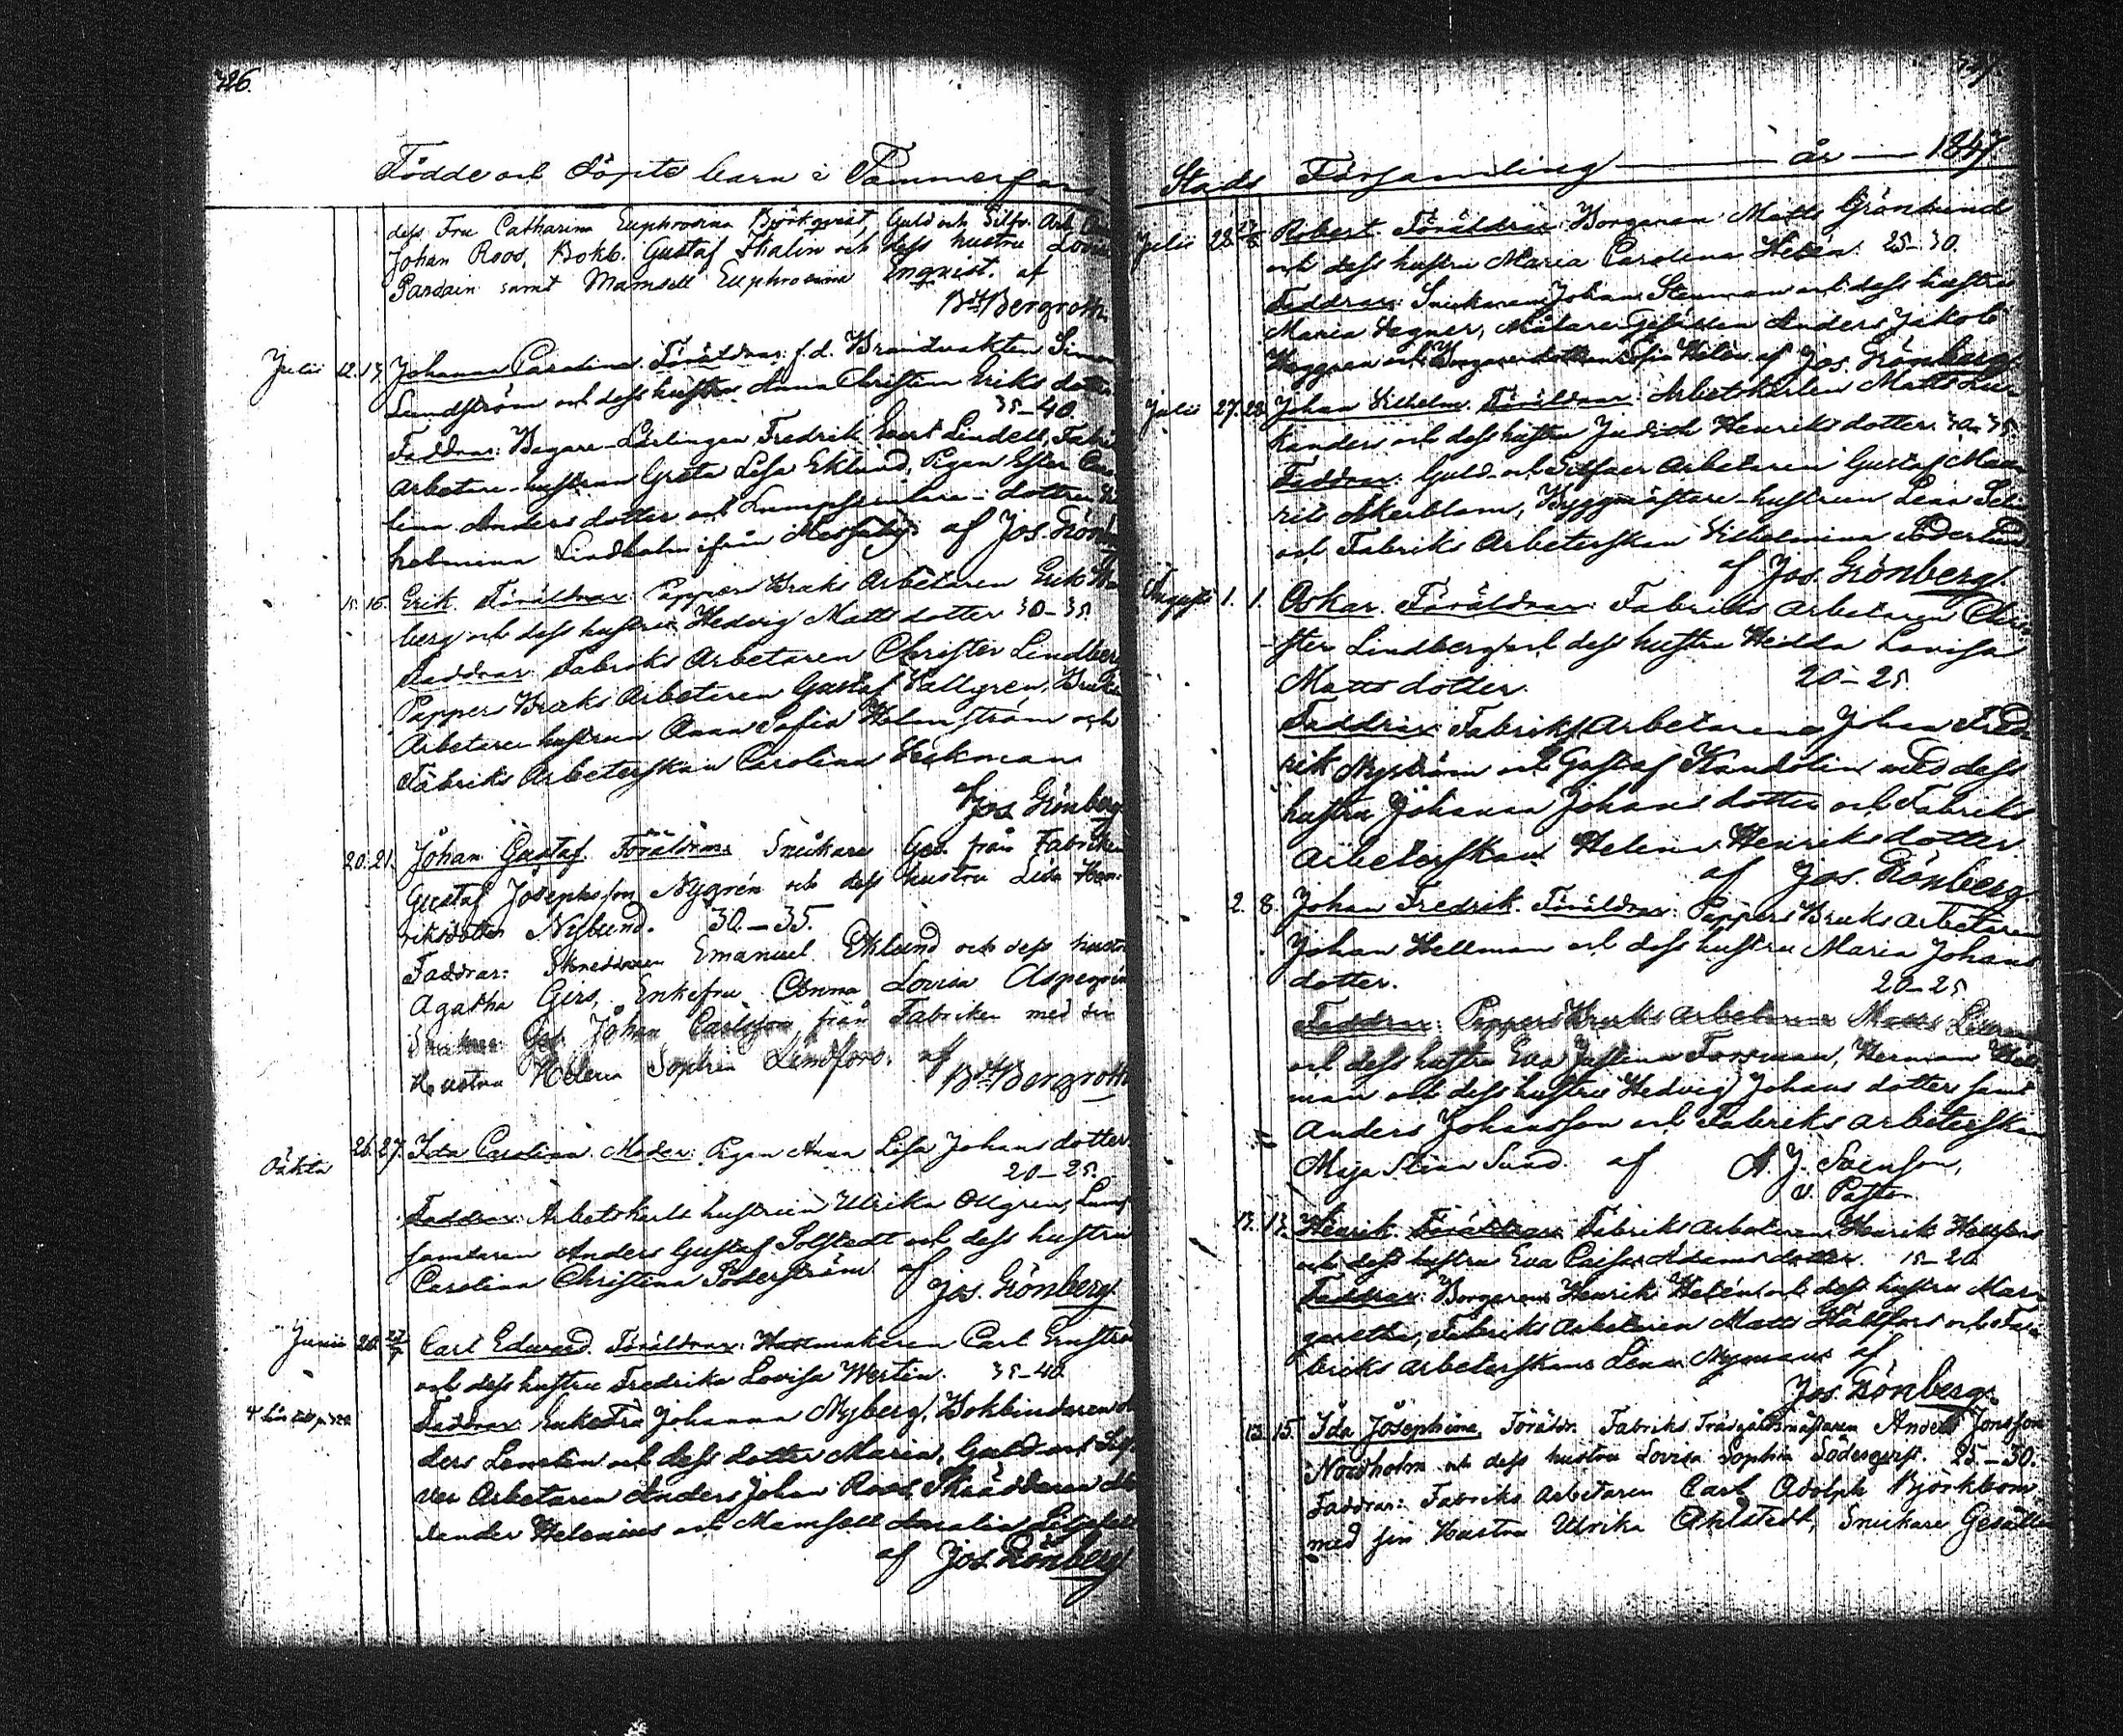 326.
Födde och Döpte barn i Tammerfors
dess Fru Catharina Euphrosina Björkqvist, Guld och Silfv. Arb.
Johan Roos, Bokb. Gustaf Thalin och dess hustru Lovisa
samt Mamsell Euphrosina Enqvist. af
Bergroth.
Julii 12. 17. Johanna Carolina. Föräldrar: f.d. Brandvakten Simon
Lundström och dess hustru Anna Christina Eriks dotter
35–40.
Faddrar: Bagare-Lärlingen Fredrik Evert Lindell, Fabriks
Arbetare-hustrun Greta Lisa Eklund, Pigan Ester
Anders dotter och Lumpsamlare-dottren
helmina Lindholm ifrån af Jos. Grönberg
15. 16. Erik. Föräldrar: Pappers Bruks Arbetaren Erik
berg och dess hustru Hedvig Matts dotter 30–35.
Faddrar: Fabriks Arbetaren Christer Lindberg
Pappers Bruks Arbetaren Gustaf Vallgren, Bruks
Arbetare hustrun Anna Sofia Holmström och
Fabriks Arbeterskan Carolina
af Jos. Grönberg
20. 21. Johan Gustaf. Föräldrar: Snickare Ges. från Fabriken
Gustaf Josephsson Nygrén och dess hustru Lisa Hen-
riksdotter Nylund. 30.–35.
Faddrar: Emanuel Eklund och dess hustru
Agatha Girs, Enkefru Anna Lovisa Aspegrén
Snickare Ges. Johan Carlsson från Fabriken med sin
Hustru Helena Sophia Lindfors. af
Bergroth
Oäkta 26. 27. Ida Carolina. Moder: Pigan Anna Lisa Johans dotter
20–25.
Faddrar: Arbetskarls hustrun Ulrika Ollgren, Lump
samlaren Anders Gustaf Solstedt och dess hustru
Carolina Christina Söderström af
Jos. Grönberg.
Junii 20. 27/7 Carl Edvard. Föräldrar: Hattmakaren Carl Enström
och dess hustru Fredrika Lovisa Westin. 35–40.
Faddrar: Enkefru Johanna Nyberg, Bokbinderen An
ders Lenelin och dess dotter Maria, Guld och Silf
ver Arbetaren Anders Johan Roos, Skräddaren
xander Helenius och Mamsell Amalia
af Jos. Grönberg
Stads Församling år 1847
Julii 23. Robert. Föräldrar: Borgaren Matts Grönlund
och dess hustru Maria Carolina Helén. 25–30.
Faddrar: Snickaren Johan Stenman och dess hustru
Maria Vegner, Målare Gesällen Anders Jakob
Heggren och Borgare dottren Sofia Helén af Jos. Grönberg.
Julii 27. 28. Johan Vilhelm. Föräldrar: Arbetskarlen Matts Lu-
kander och dess hustru Judith Henriks dotter. 30–35.
Faddrar: Guld och Silfver Arbetaren Gustaf Mau
ritz Åkerblom, Byggmästare-hustrun Lena
och Fabriks Arbeterskan Vilhelmina Söderlund
af Jos. Grönberg.
Augusti 1. 1. Oskar. Föräldrar: Fabriks Arbetaren Chri
ster Lindberg och dess hustru Hedda Lovisa
Matts dotter. 20–25.
Faddrar: Fabriks Arbetarene Johan Fred
rik Nyström och Gustaf Kandolin med dess
hustru Johanna Johans dotter och Fabriks
Arbeterskan Helena Henriks dotter.
af Jos. Grönberg
2. 8. Johan Fredrik. Föräldrar: Pappers Bruks Arbetaren
Johan Hellman och dess hustru Maria Johans
dotter. 20–25
Faddrar: Pappers Bruks Arbetaren Matts
och dess hustru Eva Justina Forsman, Herman
man och dess hustru Hedvig Johans dotter samt
Anders Johansson och Fabriks Arbeterskan
Maja Stina Sund. af A. J. Svenson,
v. Pastor
13. 13. Henrik. Föräldrar: Fabriks Arbetaren Henrik Hellfors
och dess hustru Eva Caisa Adams dotter. 15–20
Faddrar: Borgaren Henrik Helén och dess hustru Mar
garetha, Fabriks Arbetaren Matts Hällfors och Fa
briks Arbeterskan Lena Nyman af
Jos. Grönberg.
13. 15. Ida Josephina. Föräldr. Fabriks Trädgårdsmästaren Anders Jonsson
Nordholm och dess hustru Lovisa Sophia 25.–30.
Faddrar: Fabriks Arbetaren Carl Adolph Björkbom
med sin Hustru Ulrika Ahlstedt, Snickare Gesällen